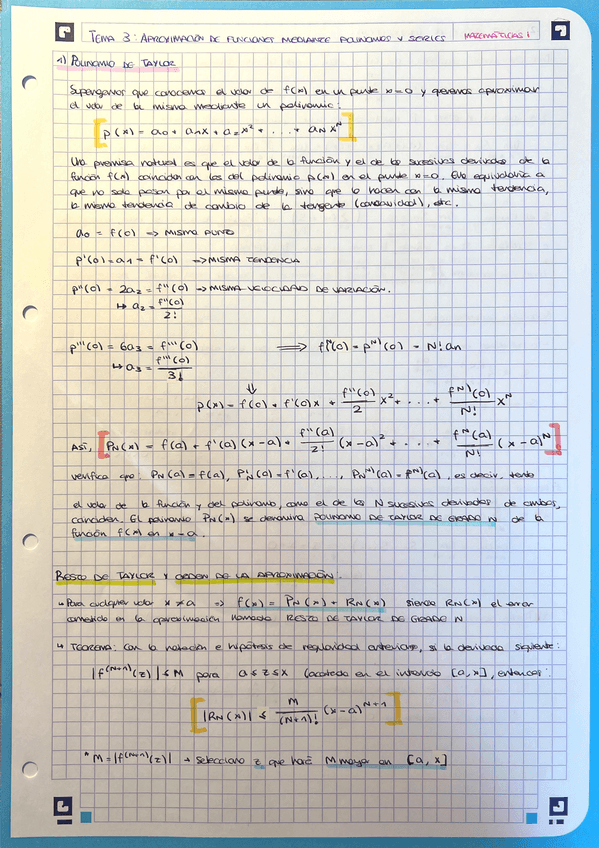 TEMA 3: APROXIMACIÓN DE FUNCIONES MEDIANTE POLINOMIOS Y SERIES MATEMÁTICAS I
1) POLINOMIO DE TAYLOR
Supongamos que conocemos el valor de f(x) en un punto x=0 y queremos aproximar
el valor de la misma mediante un polinomio:
[p(x) = a₀ + a₁x + a₂x² + ... + a_N x^N]
Una premisa natural es que el valor de la función y el de las sucesivas derivadas de la
función f(x) coincidan con las del polinomio p(x) en el punto x=0. Ello equivaldría a
que no solo pasan por el mismo punto, sino que lo hacen con la misma tendencia,
la misma tendencia de cambio de la tangente (concavidad), etc.
a₀ = f(0) => MISMO PUNTO
p'(0) = a₁ = f'(0) => MISMA TENDENCIA
p''(0) = 2a₂ = f''(0) => MISMA VELOCIDAD DE VARIACIÓN.
↳ a₂ = f''(0)/2!
p'''(0) = 6a₃ = f'''(0) ⟹ f^N)(0) = p^N)(0) = N! an
↳ a₃ = f'''(0)/3!
⇓
p(x) = f(0) + f'(0)x + f''(0)/2 x² + ... + f^N)(0)/N! x^N
ASÍ, [P_N(x) = f(a) + f'(a)(x-a) + f''(a)/2! (x-a)² + ... + f^N(a)/N! (x-a)^N]
verifica que: P_N(a) = f(a), P'_N(a) = f'(a), ..., P_N^N)(a) = f^N)(a), es decir, tanto
el valor de la función y del polinomio, como el de las N sucesivas derivadas de ambos,
coinciden. El polinomio P_N(x) se denomina POLINOMIO DE TAYLOR DE GRADO N de la
función f(x) en x=a.
RESTO DE TAYLOR Y ORDEN DE LA APROXIMACIÓN:
↳ Para cualquier valor x ≠ a => f(x) = P_N(x) + R_N(x) siendo R_N(x) el error
cometido en la aproximación llamado RESTO DE TAYLOR DE GRADO N
↳ TEOREMA: Con la notación e hipótesis de regularidad anteriores, si la derivada siguiente:
|f^(N+1)(z)| ≤ M para a ≤ z ≤ x (acotada en el intervalo [a,x], entonces:
[|R_N(x)| ≤ M/(N+1)! (x-a)^N+1]
* M = |f^(N+1)(z)| → Selecciono z que hará M mayor en [a, x]